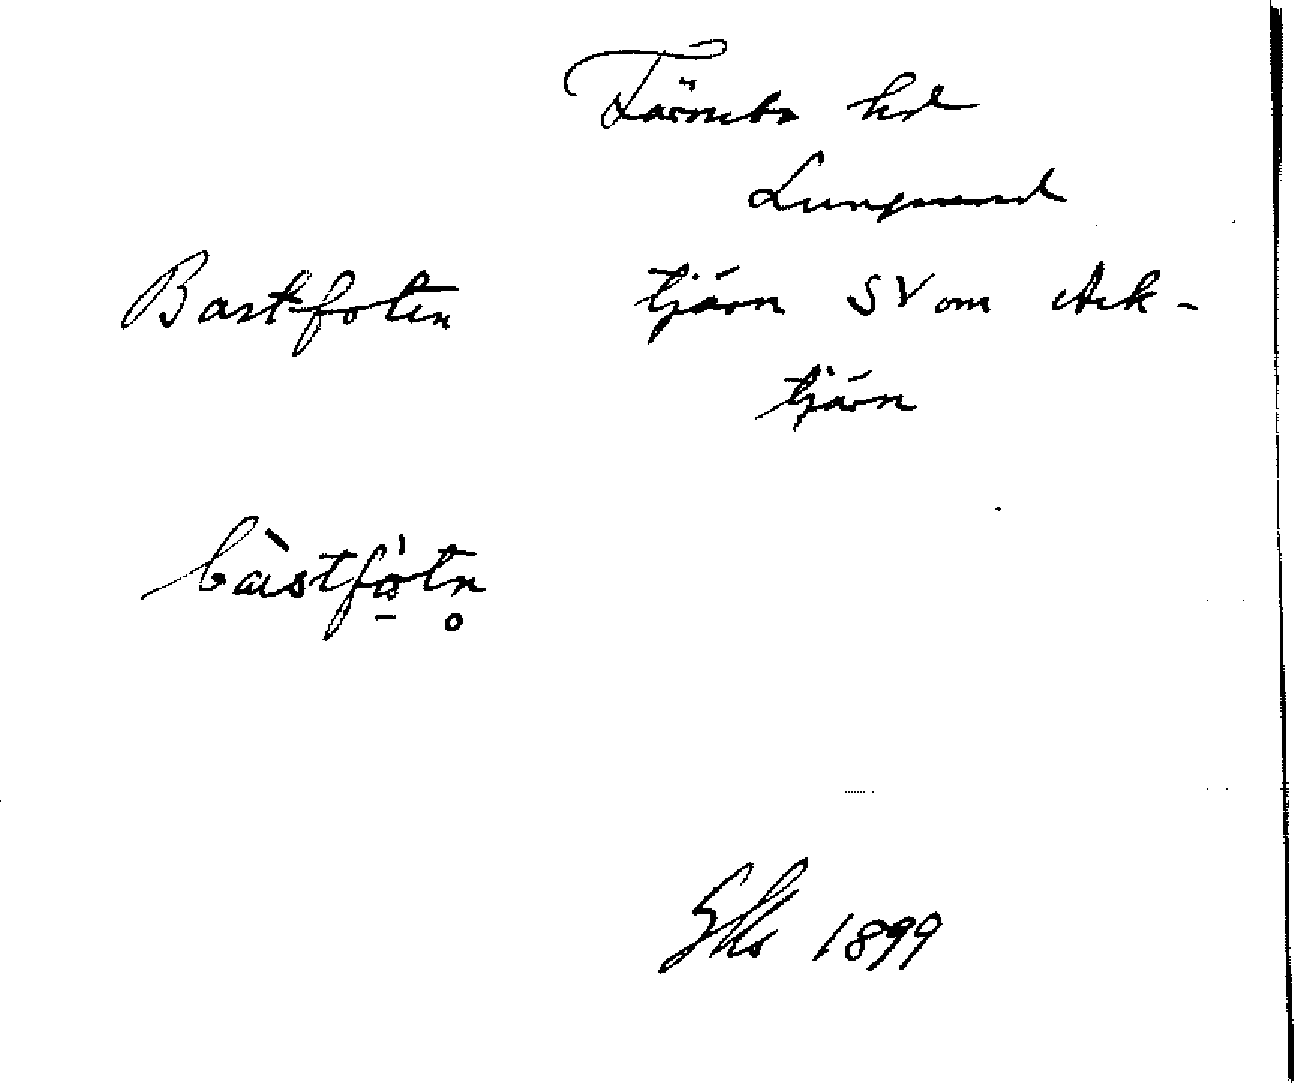 Tärnebo hd
Lungsund
Bastfoten tjärn SV om Ack-
tjärn
bàstfo̠tn̥
1899